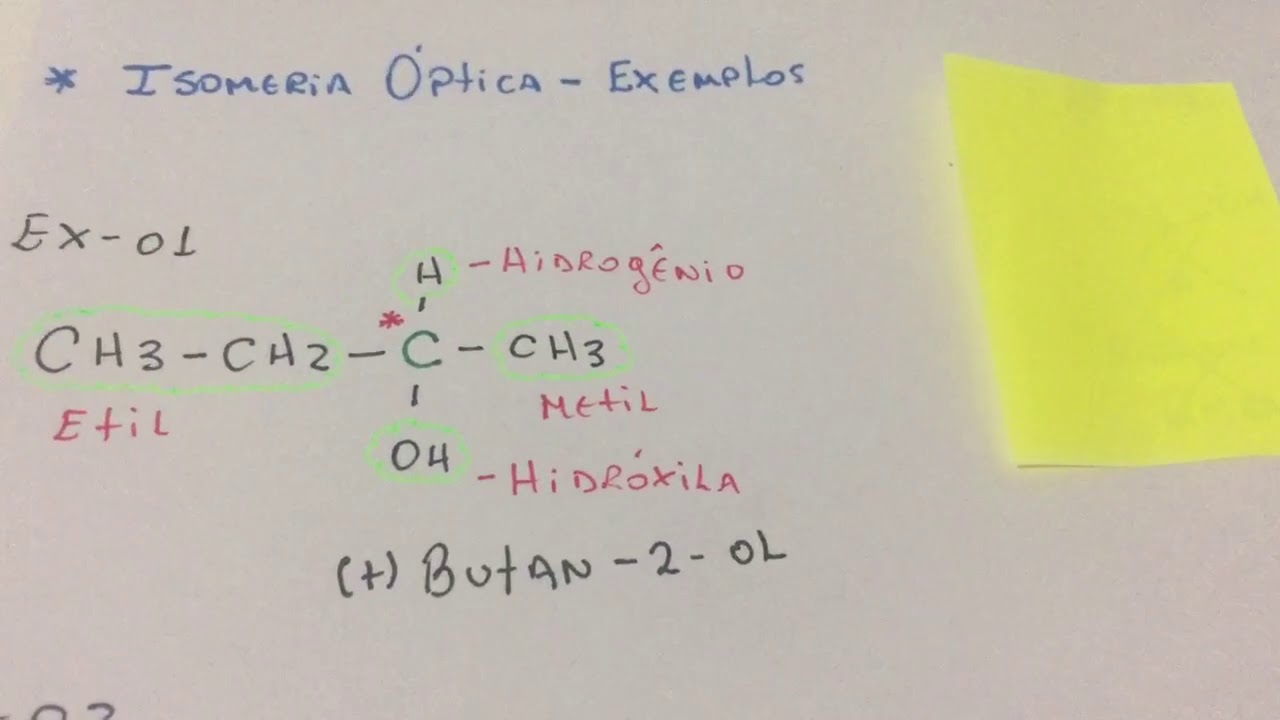 * Isomeria Óptica - Exemplos
Ex-01
H - Hidrogênio
*
CH3 - CH2 - C - CH3
Etil
Metil
OH - Hidróxila
(+) Butan - 2 - ol